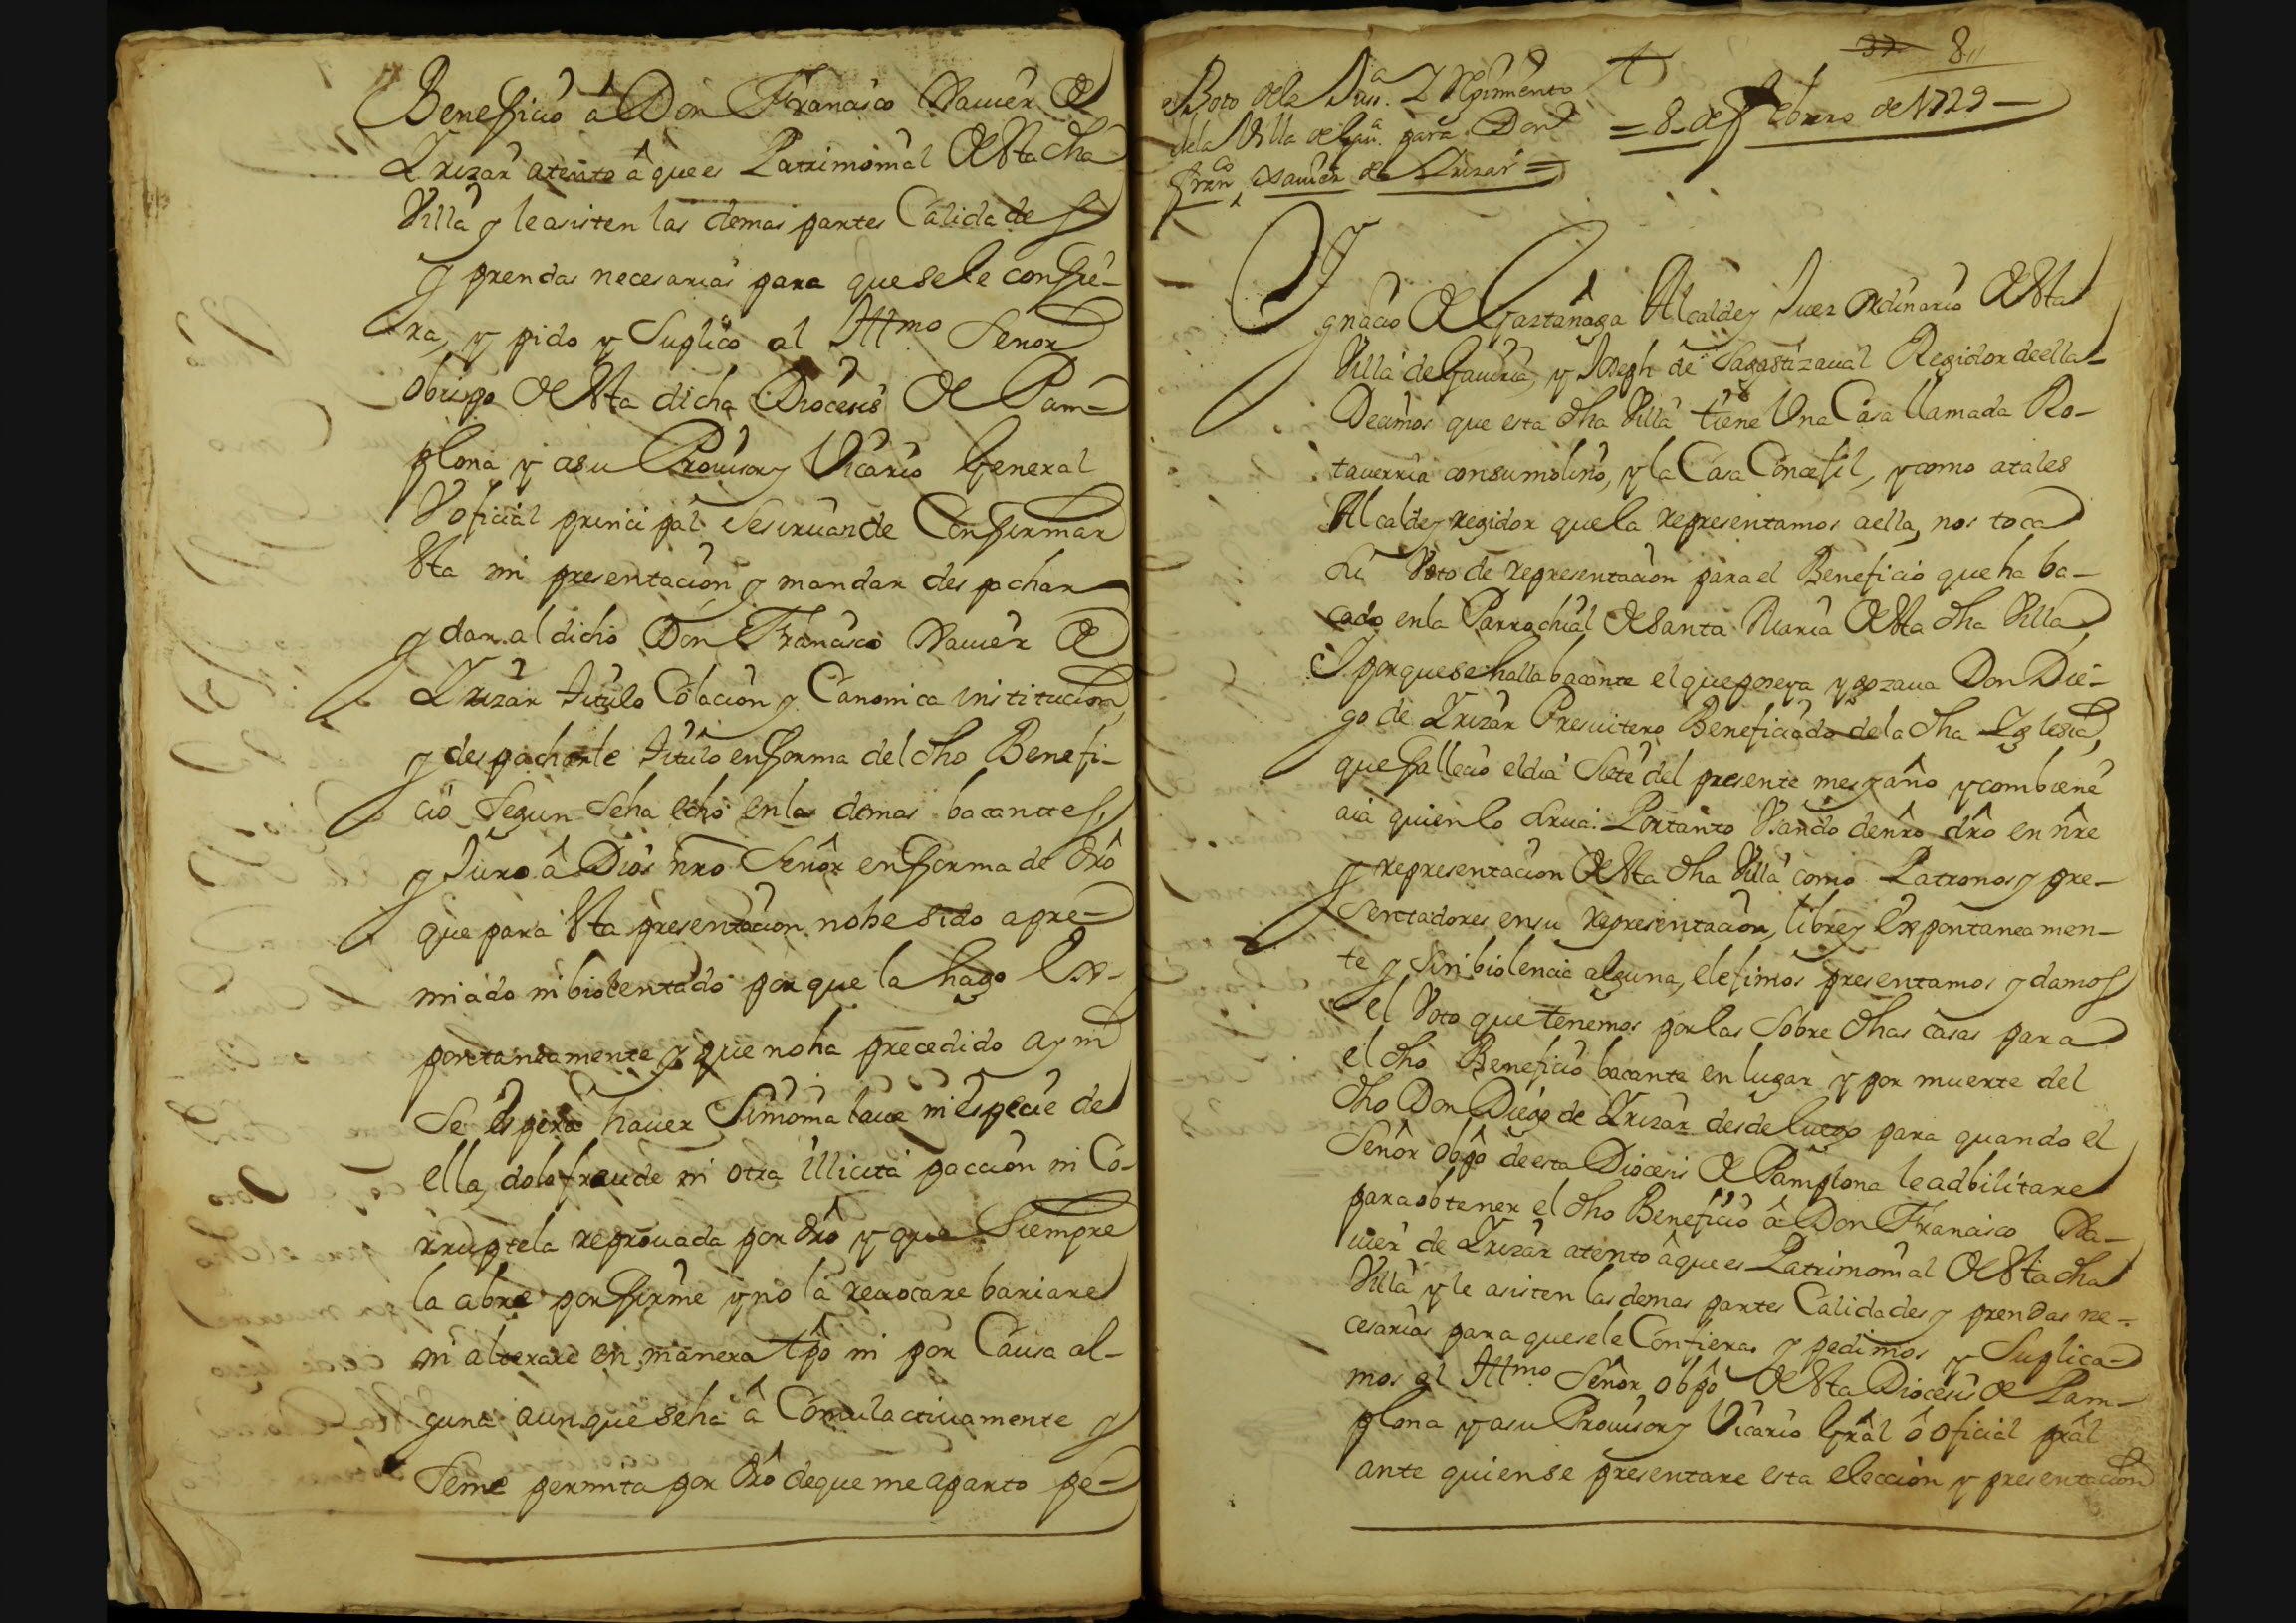 Beneficio â Don Francisco Xauier de
Yrizar atento â que es Patrimonial de esta dha
Villa y le asisten las demas partes Calidades
y prendas necesarias para que se le confie-
ra, y pido y Suplico al Illmo Señor
obispo de esta dicha Diocesis de Pam-
plona y asu Prouisor y Vicario General
V oficial principal Sesiruan de Confirmar
esta mi presentacion y mandar despachar
y dar al dicho Don Francisco Xauier de
Yrizar titulo Colacion y Canonica institucion,
y despacharle titulo en forma del dho Benefi-
cio Segun Seha echo en las demas bacantes,
y Juro â Dios nro Señor en forma de dro
que para esta presentacion nohe sido apre-
miado ni biolentado por que la hago Ex-
pontaneamente y que no ha precedido ay ni
Se espera hauer Simonia laue ni especie de
ella, dolo fraude ni otra illicita paccion ni Co-
rruptela reprouada por dro y que Siempre
la abre por firme y no la reuocare bariare
ni alterare en manera tpo ni por Causa al-
guna aunque seha â Comulactiuamente y
Seme permita por dro de que me aparto pe-
37 8
Boto dela Jussa. Y Regimiento
dela Villa de Gaua. para Don
Franco Xauier de Yrizar =
= 8 - de Febrero de 1729 -
Ygnacio de Gaztañaga Alcalde y Juez ordinario de esta
Villa de Gauiria, y Joseph de Sagastizaual Regidor de ella
Decimos que esta dha Villa tiene Una Casa llamada Ro-
tauerria consumolino, y la Casa Concejil, y como atales
Alcalde y regidor que la representamos aella, nos toca
Su Voto de representacion para el Beneficio que ha ba-
cado en la Parrochial de Santa Maria de esta dha Villa,
Y porque se halla bacante el que poseya y gozaua Don Die-
go de Yrizar Presuitero Beneficiado de la dha Yglesia,
que fallecio el dia Siete del presente mes y año y combiene
aia quien lo Sirua. Portanto Vsando de nro dro en nre
y representacion de esta dha Villa como Patronos y pre-
sentadores en su representacion, libre y Expontaneamen-
te y Sin biolencia alguna, elejimos presentamos y damos
el Voto que tenemos por las Sobre dhas casas para
el dho Beneficio bacante en lugar y por muerte del
dho Don Diego de Yrizar desde luego para quando el
Señor obpo de esta Diocesis de Pamplona le adbilitare
para obtener el dho Beneficio â Don Francisco Xa-
uier de Yrizar atento âque es Patrimonial de esta dha
Villa y le asisten las demas partes Calidades y prendas ne-
cesarias para que sele Confiera y pedimos y Suplica-
mos al Illmo Señor obpo de esta Diocesis de Pam-
plona y asu Prouisor y Vicario Gral ô oficial pral
ante quien se presentare esta eleccion y presentacion